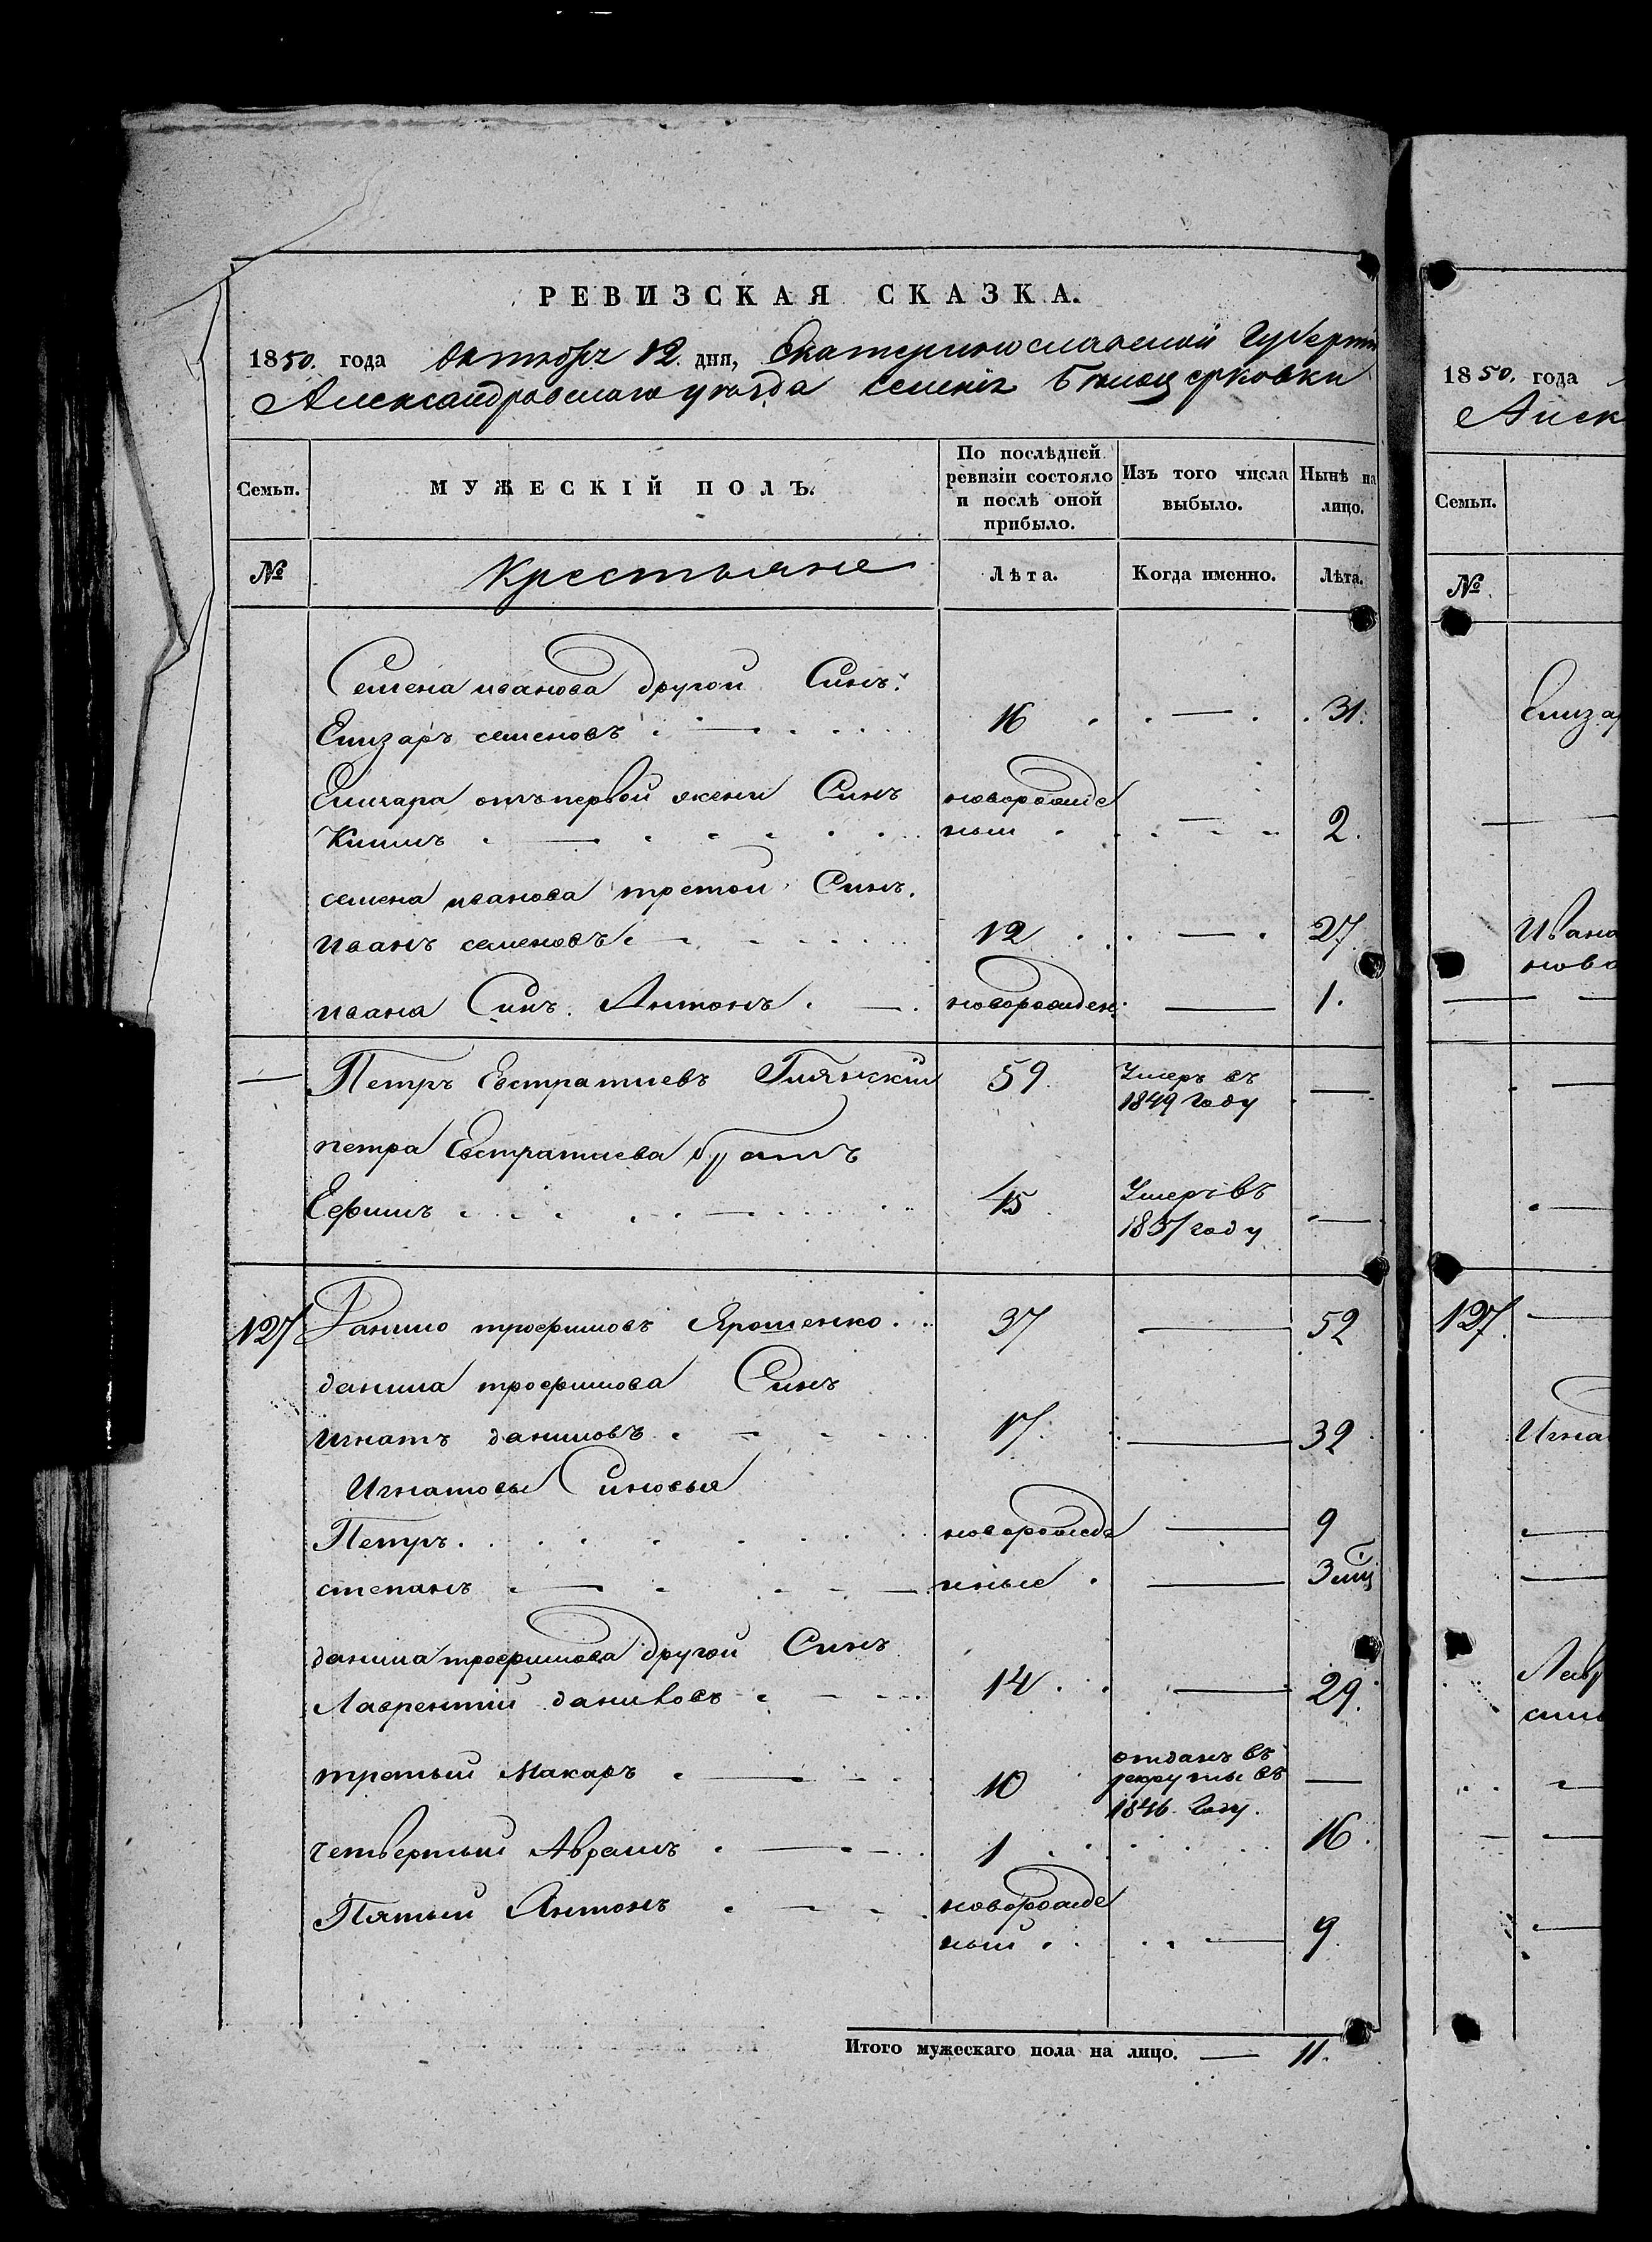 РЕВИЗСКАЯ СКАЗКА.
1850. года октября 12 дня, Екатеринославской Губернии
Александровского уезда селения Белоцерковки
Семьи. МУЖЕСКІЙ ПОЛЪ. По послѣдней ревизіи состояло и послѣ оной прибыло. Изъ того числа выбыло. Нынѣ на лицо.
№ Крестьяне Лѣта. Когда именно. Лѣта.
Семена иванова другой Синъ.
Елизаръ семеновъ 16 — 31.
Елизара отъ первой жени Синъ новорожде
Климъ ный — 2.
семена иванова третой Синъ.
иванъ семеновъ 12 — 27
ивана Синъ Антонъ новорожден: — 1.
— Петръ Евстратиевъ 59. Умеръ въ 1849 Году —
петра Евстратиева братъ
Ефимъ 45 Умеръ въ 1837 году —
127 Данило трофимовъ Ярошенко. 37 — 52
данила трофимова Синъ
игнатъ даниловъ 17. — 32
Игнатовы Синовья
Петръ. новорожде — 9
степанъ нные — 3 мщ
данила трофимова другой Синъ
Лаврентий даниловъ 14. — 29.
третый Макаръ 10 отданъ въ рекруты въ 1846 Году. —
четвертый Аврамъ 1 16.
Пятый Антонъ новорожде
ный — 9.
Итого мужескаго пола на лицо. — 11.
1850. года
Алек
Семьи.
№
Елизар
Ивана
ново
127.
Игна
Лавр